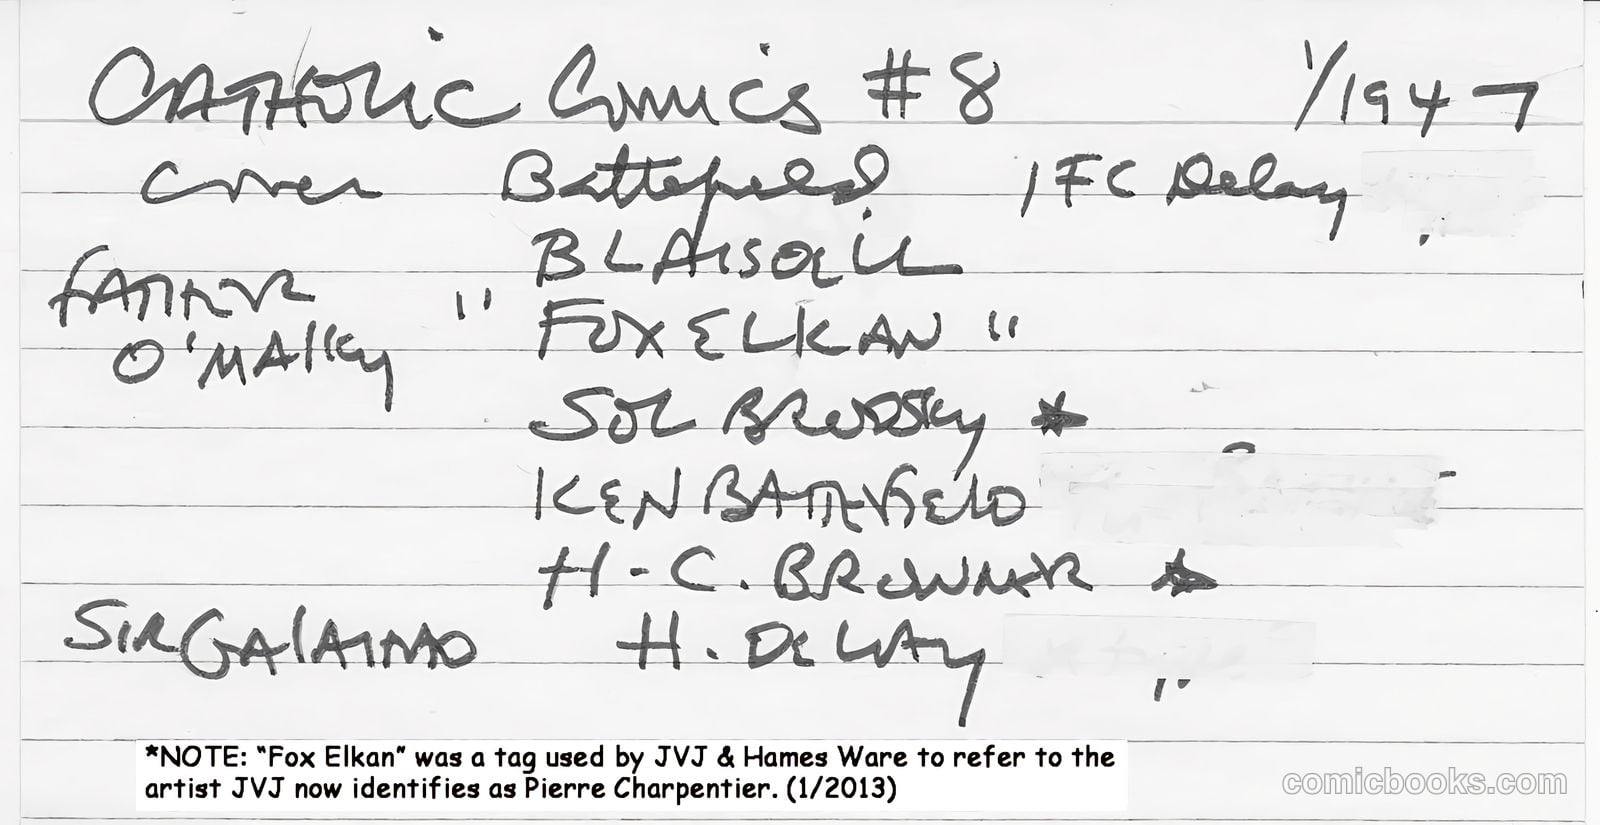 CATHOLIC Comics #8 1/1947
Cover Battlefield IFC Delay
BLAISDELL
FATHER " FOX ELKAN "
O'MALLEY
SOL BRODSKY *
KEN BATTLEFIELD
H-C. BROWNER *
SIR GALAHAD H. DELAY
"
*NOTE: "Fox Elkan" was a tag used by JVJ & Hames Ware to refer to the
artist JVJ now identifies as Pierre Charpentier. (1/2013)
comicbooks.com